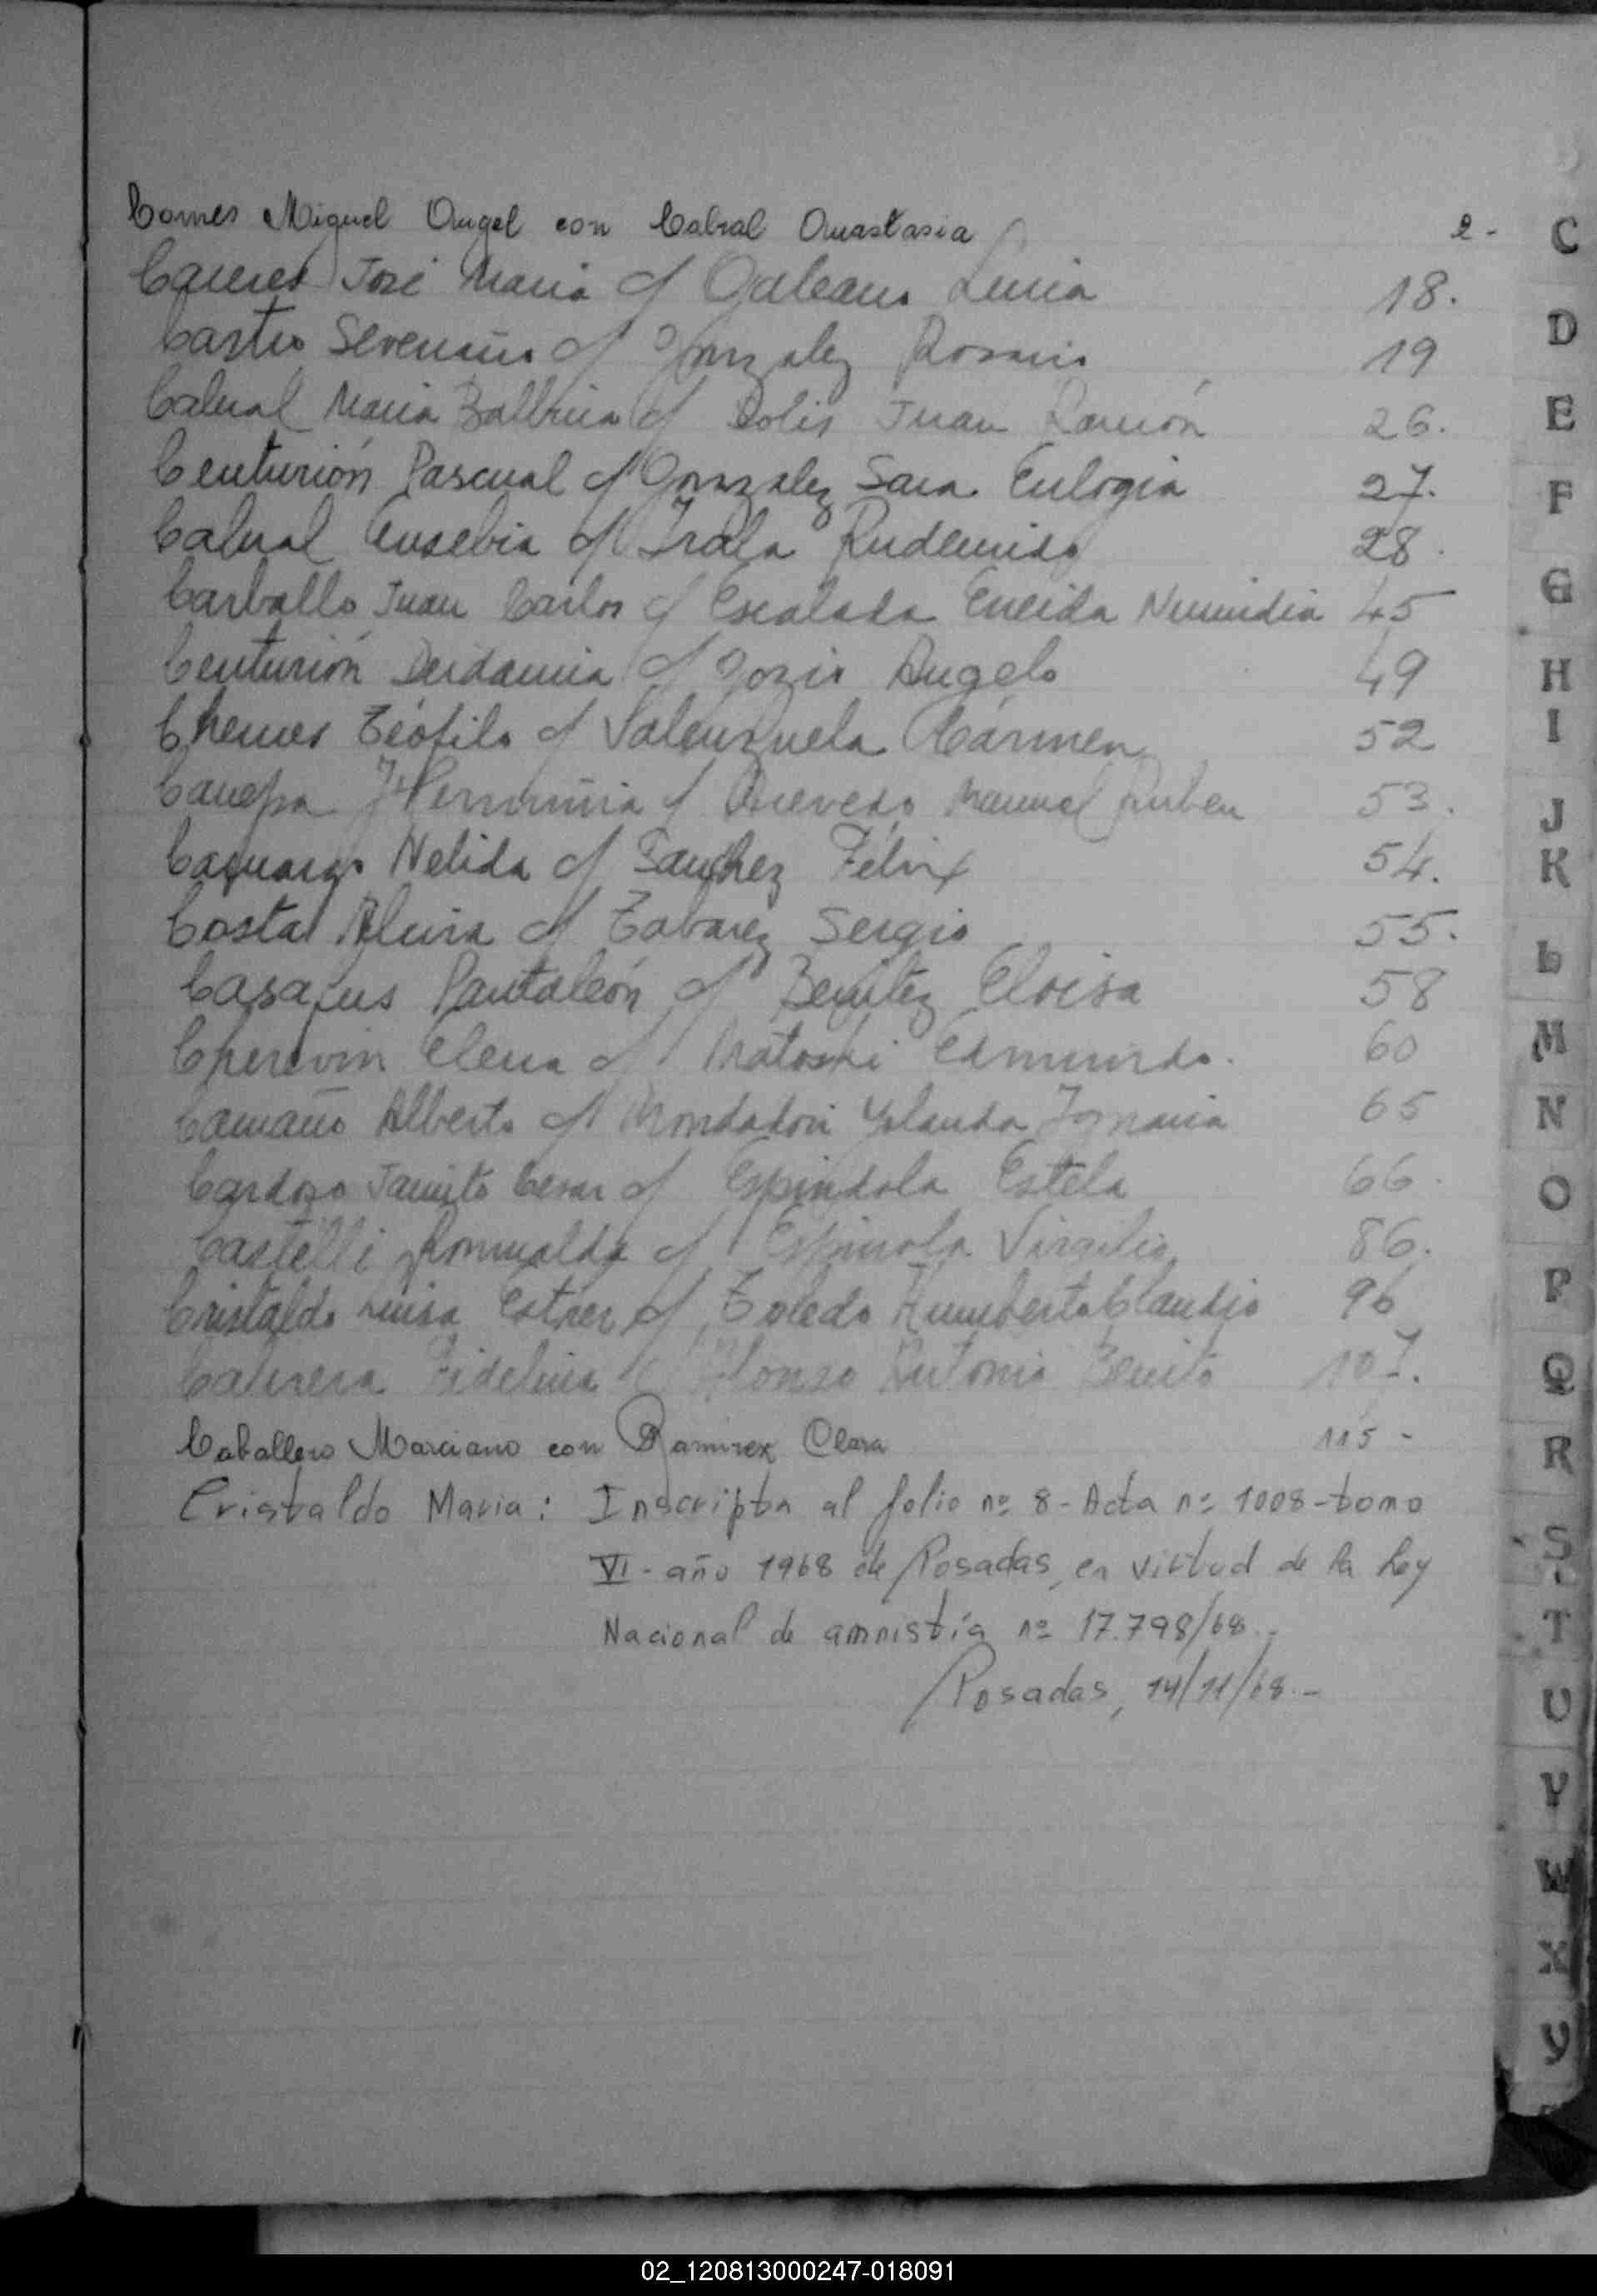 Comes Miguel Angel con Cabral Anastasia 2-
Caceres José Maria c/ Galeano Lucia 18.
Castro Severiano c/ Gonzalez Rosario 19
Cabral Maria Balbina c/ Solis Juan Ramón 26.
Centurión Pascual c/ Gonzalez Sara Eulogia 27.
Cabral Eusebia c/ Irala Rudecindo 28.
Carballo Juan Carlos c/ Escalada Eneida Numidia 45
Centurión Deidamia c/ Angelo 49
Chemes Teófilo c/ Valenzuela Cármen 52
Canepa Herminia c/ Acevedo Manuel Ruben 53.
Nelida c/ Sanchez Félix 54.
Costa c/ Tabarez Sergio 55.
Casajus Pantaleón c/ Benitez Eloisa 58
Elena c/ Edmundo. 60
Camaño Alberto c/ Mondadori Yolanda Ignacia 65
Cardozo Jacinto Cesar c/ Espindola Estela 66.
Castelli Romualda c/ Espinola Virgilio 86.
Cristaldo Luisa Ester c/ Toledo Humberto Claudio 96
Cabrera Fidelina c/ Alonso Antonio Benito 107.
Caballero Marciano con Ramirez Clara 115-
Cristaldo Maria: Inscripta al folio nº 8-Acta nº 1008-tomo
VI-año 1968 de Posadas, en virtud de la Ley
Nacional de amnistía nº 17.798/68.
Posadas, 14/11/68.-
C
D
E
F
G
H
I
J
K
L
M
N
O
P
Q
R
S
T
U
V
W
X
Y
02_120813000247-018091